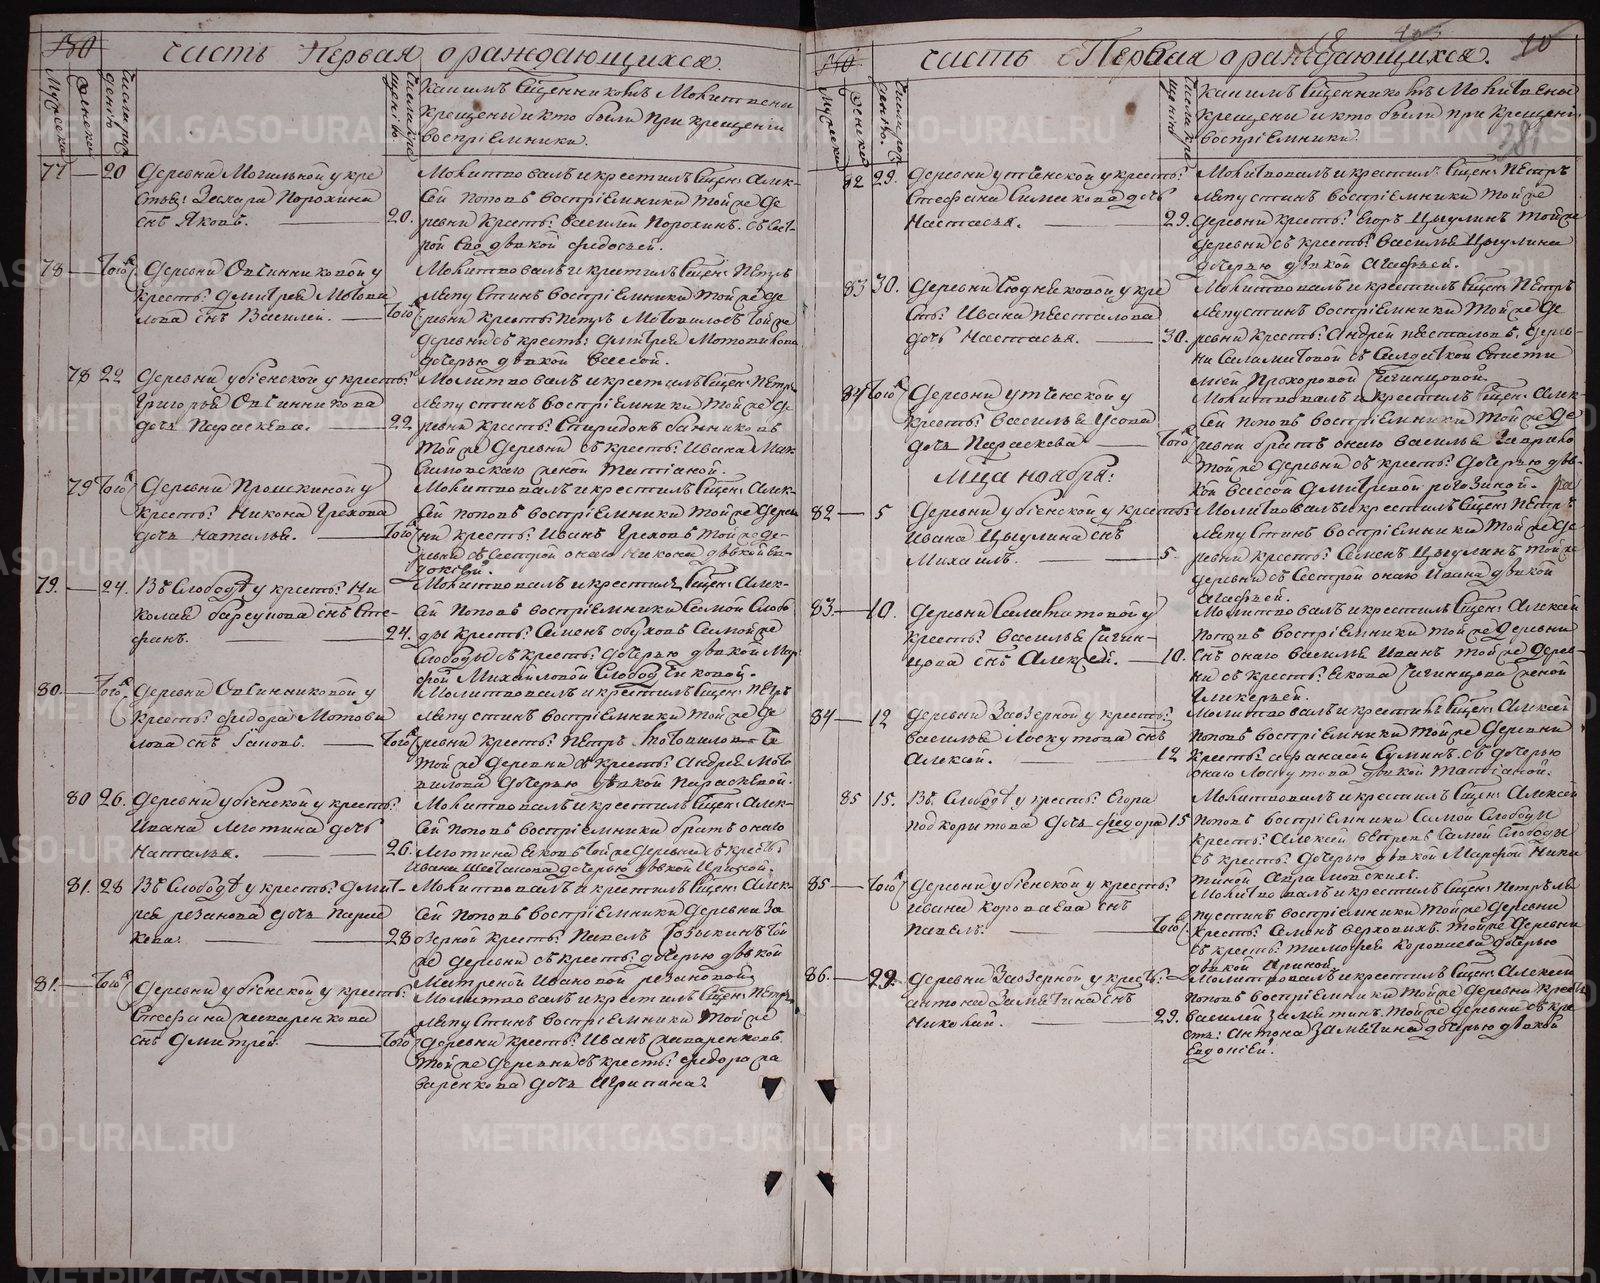 Часть Первая о раждающихся.
Каким Священником Молитвени
крещены и кто были при крещении
восприемники.
77 — 20 Деревни Могильной у кре
Порохина
снъ Яковъ. — 20.
Молитвовалъ и крестилъ Свщен: Алек-
сей Поповъ восприемники той же де
ревни крест: Василий Порохинъ. съ сест-
рой его девкой Федосьей.
78 — Того Деревни Овчинниковой у
крестья: Дмитрея Мотови
лова снъ Василей. — того
Молитвовалъ и крестилъ Свщен: Петръ
Лепустинъ восприемники той же де
ревни кресть: Петръ Мотовиловъ той же
деревни съ кресть: Дмитрея Мотовилова
дочерью девкой Вассой.
78 22 Деревни убиенской у кресть:
Григорья Овчинникова
дочь Параскева. — 22
Молитвовалъ и крестилъ Свщен: Петръ
Лепустинъ восприемники той же де
ревни кресть: Спиридонъ Банниковъ
той же деревни съ кресть: Ивана
женой Татианой.
79 Того Деревни Прошкиной у
кресть: Никона Грехова
дочь Наталья. — того
Молитвовалъ и крестилъ Свщен: Алек-
сей Поповъ восприемники той же дерев
ни кресть: Иванъ Греховъ той же де-
ревни съ сестрой онаго Никона девкой Ев-
докией.
79. — 24. Въ Слободе у кресть: Ни
колая снъ Сте-
фанъ. — 24.
Молитвовалъ и крестилъ Свщен: Алек-
сей Поповъ восприемники самой Слобо
ды кресть: Семенъ Обуховъ самой же
Слободы съ кресть: дочерью девкой Мар
фой Михайловой
80. — Того Деревни Овчинниковой у
кресть: Федора Мотови
лова снъ — того
Молитвовалъ и крестилъ Свщен: Петръ
Лепустинъ восприемники той же де
ревни кресть: Петръ Мотовиловъ
той же деревни съ кресть: Андрея Мото
вилова дочерью девкой Параскевой.
80 26. Деревни убиенской у кресть:
Ивана Леготина дочь
Наталья. — 26.
Молитвовалъ и крестилъ Свщен: Алек-
сей Поповъ восприемники братъ онаго
Леготина Яковъ той же деревни съ кресть:
Ивана дочерью девкой Ириной.
81. 28 Въ Слободе у кресть: Дмит-
рея Резанова дочь Парас
кева. — 28
Молитвовалъ и крестилъ Свщен: Алек-
сей Поповъ восприемники деревни За
озерной кресть: Павелъ той
же деревни съ кресть: дочерью девкой
Матреной Ивановой Резановой.
81. — Того Деревни убиенской у кресть:
Стефана Жаваренкова
снъ Дмитрей. — того
Молитвовалъ и крестилъ Свщен: Петръ
Лепустинъ восприемники той же
деревни кресть: Иванъ Жаваренковъ
той же деревни съ кресть: Федора Жа
варенкова дочь Агрипина.
Часть Первая о раждающихся.
Каким Священником Молитвены
крещены и кто были при крещении
восприемники.
82 29. Деревни у кресть:
Стефана Симакова дочь
Настасья. — 29.
Молитвовалъ и крестилъ Свщен: Петръ
Лепустинъ восприемники той же
деревни кресть: Егоръ Цыулинъ той же
деревни съ кресть: Василья Цыулина
дочерью девкой Агафьей.
83 30. Деревни у кре
сть: Ивана Песталова
дочь Настасья. — 30.
Молитвовалъ и крестилъ Свщен: Петръ
Лепустинъ восприемники той же де
ревни кресть: Андрей Песталовъ, дерев-
ни Саламатовой съ
Прохоровой Чигинцовой.
84 Того Деревни у
кресть: Василья Усова
дочь Параскева — того
Молитвовалъ и крестилъ Свщен: Алек-
сей Поповъ восприемники той же де
ревни братъ онаго Василья Гаврило
той же деревни съ кресть: дочерью дев-
кой Вассой Дмитревой Рогозиной.
Мца ноября:
82 — 5 Деревни убиенской у кресть:
Ивана Цыулина снъ
Михаилъ. — 5.
Молитвовалъ и крестилъ Свщен: Петръ
Лепустинъ восприемники той же де
ревни кресть: Семенъ Цыулинъ той же
деревни съ сестрой онаго Ивана девкой
Агафьей.
83. — 10. Деревни Саламатовой у
кресть: Василья Чигин-
цова снъ Алексей. — 10.
Молитвовалъ и крестилъ Свщен: Алексей
Поповъ восприемники той же деревни
снъ онаго Василья Иванъ той же дерев-
ни съ кресть: Якова Чигинцова женой
Гликерьей.
84 — 12 Деревни Заозерной у кресть:
Василья Лоскутова снъ
Алексей. — 12
Молитвовалъ и крестилъ Свщен: Алексей
Поповъ восприемники той же деревни
кресть: Афанасей Суминъ. съ дочерью
онаго Лоскутова девкой Татианой.
85 15. Въ Слободе у кресть: Егора
Подкорытова дочь Федора 15
Молитвовалъ и крестилъ Свщен: Алексей
Поповъ восприемники самой Слободы
кресть: Алексей самой Слободы
съ кресть: дочерью девкой Марфой Ники
тиной
85 — Того Деревни убиенской у кресть:
Ивана Коропаева снъ
Павелъ. — того
Молитвовалъ и крестилъ Свщен: Петръ Ле
пустинъ восприемники той же деревни
кресть: Семенъ Верховыхъ. той же деревни
съ кресть: Тимофея Коропаева дочерью
девкой Ариной.
86. — 29. Деревни Заозерной у кресть:
Антона Заметина снъ
Николай. — 29.
Молитвовалъ и крестилъ Свщен: Алексей
Поповъ восприемники той же деревни кресть:
Василей Заметинъ. той же деревни съ кре
сть: Антона Заметина дочерью девкой
Евдокией.